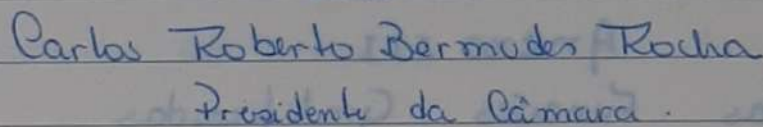 Carlos Roberto Bermudes Rocha
Presidente da Câmara.